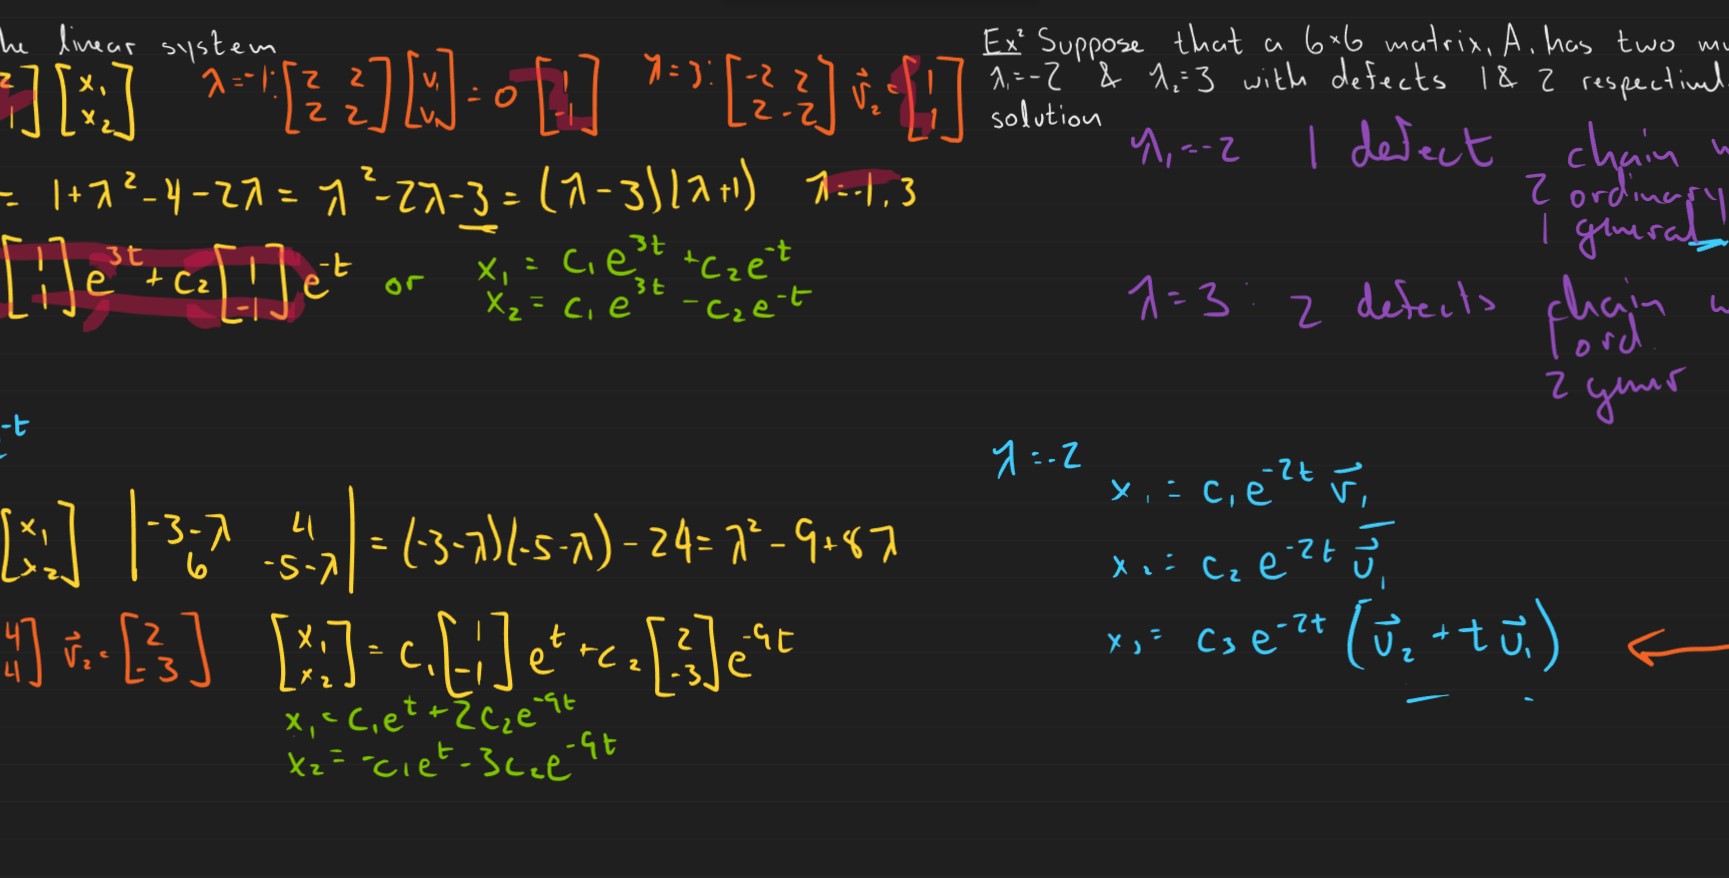 he linear system
[x₁ x₂]
λ=-1: [2 2 2 2] [v₁ v₂] = 0 [1 -1]
λ=3: [-2 2 2 -2] v⃗₂ = [1 1]
= 1+λ²-4-2λ = λ²-2λ-3 = (λ-3)(λ+1) λ=-1,3
[1 1] e^3t + c₂ [1 -1] e^-t or x₁ = c₁e^3t + c₂e^-t
x₂ = c₁e^3t - c₂e^-t
-t
[x₁ x₂] |-3-λ 4 6 -5-λ| = (-3-λ)(-5-λ) - 24 = λ² - 9 + 8λ
4] 4] v⃗₂ = [2 -3] [x₁ x₂] = c₁ [1 -1] e^t + c₂ [2 -3] e^-9t
x₁ = c₁e^t + 2c₂e^-9t
x₂ = -c₁e^t - 3c₂e^-9t
Ex² Suppose that a 6×6 matrix, A, has two mu
λ₁=-2 & λ₂=3 with defects 1 & 2
solution
λ₁=-2 1 defect chain w
2 ordinary
1 general
λ=3: 2 defects chain w
1 ord.
2 gener
λ=-2
x₁ = c₁e^-2t v⃗₁
x₂ = c₂e^-2t u⃗₁
x₃ = c₃e^-2t (u⃗₂ + t u⃗₁)